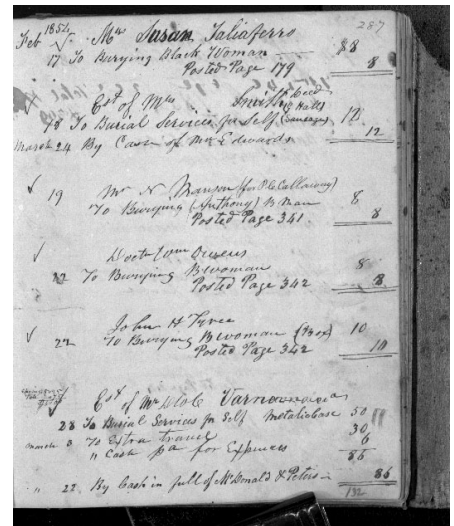 287
Feb 1854 Mrs Susan Taliaferro
17 To Burying Black Woman $8
Posted Page 179 8
Est of Mrs Smith Decd
18 To Burial Services for Self 12
March 24 By Cash of Mr Edwards 12
19 Mr N Manson (for P.C. Callaway)
To Burying (Anthony) B Man 8
Posted Page 341. 8
Doctr Wm Owens
22 To Burying B woman 8
Posted Page 342 8
John H Tyree
22 To Burying B woman (Box) 10
Posted Page 342 10
Est of Mr
28 To Burial Services for Self Metalic Case 50
March To Extra 30
" Cash pa for Expenses 6
86
" 22 By Cash in full of McDonald & Peters 86
132